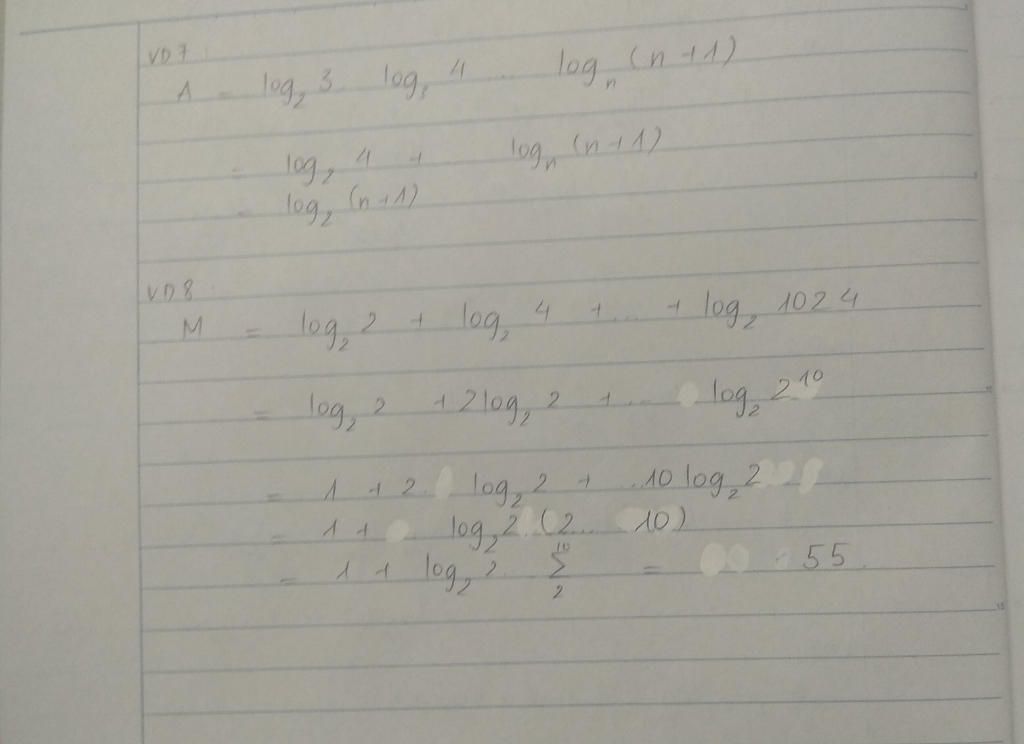 VD7:
A = log₂3 . log₃4 ... logₙ(n+1)
= log₂4 + logₙ(n+1)
= log₂(n+1)
VD8:
M = log₂2 + log₂4 + ... + log₂1024
= log₂2 + 2log₂2 + ... log₂2¹⁰
= 1 + 2. log₂2 + ..10log₂2
= 1 + log₂2.(2... 10)
= 1 + log₂2. ∑₂¹⁰ = 55.